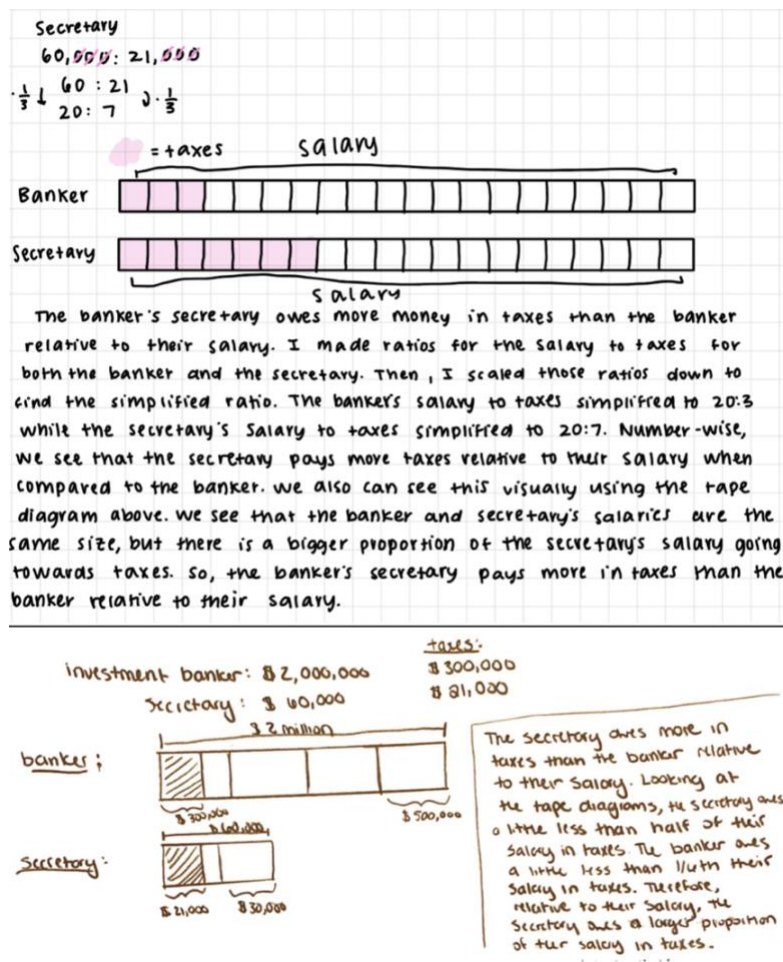 Secretary
60,000 : 21,000
· 1/3 ↓ 60 : 21 · 1/3
20 : 7
= taxes
salary
Banker
Secretary
salary
The banker's secretary owes more money in taxes than the banker
relative to their salary. I made ratios for the salary to taxes for
both the banker and the secretary. Then, I scaled those ratios down to
find the simplified ratio. The banker's salary to taxes simplified to 20:3
while the secretary's salary to taxes simplified to 20:7. Number-wise,
we see that the secretary pays more taxes relative to their salary when
compared to the banker. we also can see this visually using the tape
diagram above. we see that the banker and secretary's salaries are the
same size, but there is a bigger proportion of the secretary's salary going
towards taxes. So, the banker's secretary pays more in taxes than the
banker relative to their salary.
taxes:
investment banker: $2,000,000 $300,000
secretary: $60,000 $21,000
$2 million
banker:
$300,000 $500,000
$60,000
secretary:
$21,000 $30,000
The secretary owes more in
taxes than the banker relative
to their salary. Looking at
the tape diagrams, the secretary owes
a little less than half of their
salary in taxes. The banker owes
a little less than 1/4th their
salary in taxes. Therefore,
relative to their salary, the
secretary owes a larger proportion
of their salary in taxes.